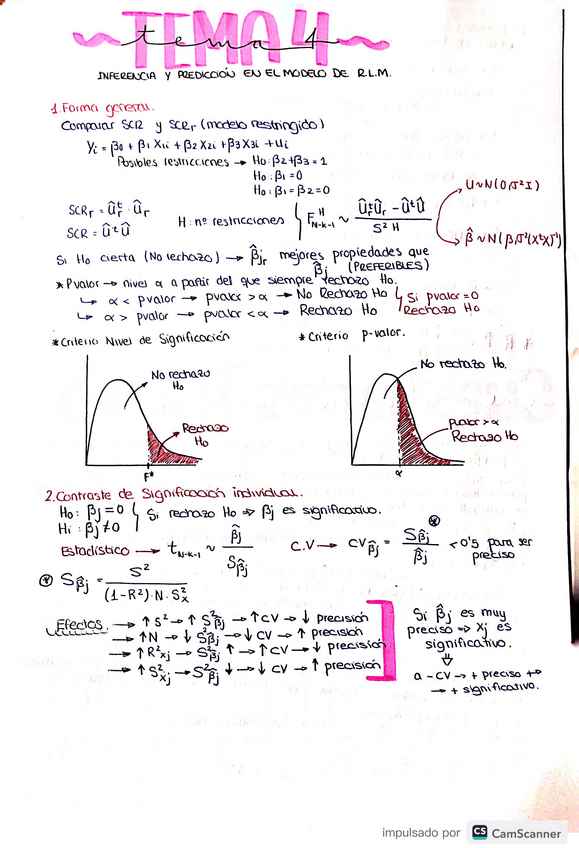 TEMA 4
tema 4
INFERENCIA Y PREDICCIÓN EN EL MODELO DE R.L.M.
1. Forma general.
Comparar SCR y SCRr (modelo restringido)
Yi = β0 + β1 X1i + β2 X2i + β3 X3i + Ui
Posibles restricciones → H0: β2+β3 = 1
H0: β1 = 0
H0: β1 = β2 = 0
SCRr = Ûrᵗ · Ûr
SCR = Ûᵗ Û
H: nº restricciones { F^H_N-k-1 ~ (Ûrᵗ Ûr - Ûᵗ Û) / (S² H)
U~N(0, σ² I)
β̂ ~ N(β, σ²(XᵗX)⁻¹)
Si H0 cierta (No rechazo) → β̂jr mejores propiedades que β̂j (PREFERIBLES)
* Pvalor → nivel α a partir del que siempre rechazo H0.
↳ α < pvalor → pvalor > α → No Rechazo H0
↳ α > pvalor → pvalor < α → Rechazo H0
Si pvalor = 0
Rechazo H0
* Criterio Nivel de Significación
* Criterio p-valor.
No rechazo
H0
Rechazo
H0
F*
No rechazo H0.
pvalor > α
Rechazo H0
α
2. Contraste de Significación individual.
H0: βj = 0
H1: βj ≠ 0
Si rechazo H0 ⇒ βj es significativo.
Estadístico → t_N-k-1 ~ β̂j / Sβ̂j
C.V → CVβ̂j = Sβ̂j / β̂j < 0'5 para ser
preciso
* Sβ̂j = S² / ((1-R²)·N·S²x)
Efectos. → ↑ S² → ↑ S²β̂j → ↑ CV → ↓ precisión
→ ↑ N → ↓ S²β̂j → ↓ CV → ↑ precisión
→ ↑ R²xj → S²β̂j ↑ → ↑ CV → ↓ precisión
→ ↑ S²xj → S²β̂j ↓ → ↓ CV → ↑ precisión
Si β̂j es muy
preciso ⇒ Xj es
significativo.
⇓
a - CV → + preciso
→ + significativo.
impulsado por CS CamScanner